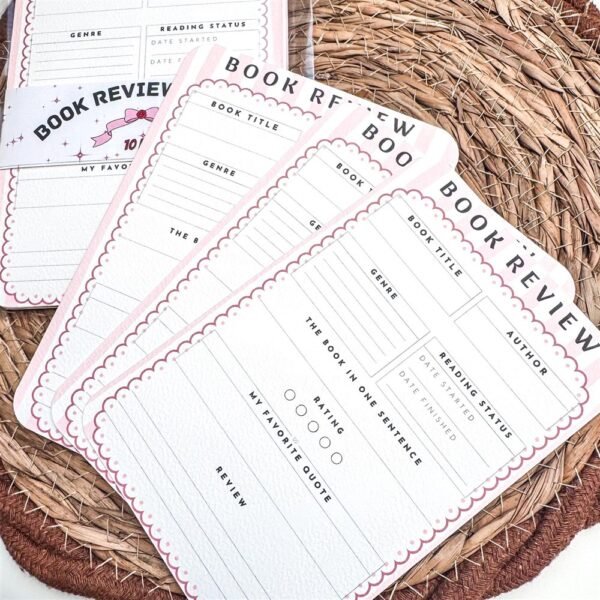 GENRE
READING STATUS
DATE STARTED
DATE
BOOK REVIEW
10
MY FAVO
BOOK REVIEW
BOOK TITLE
GENRE
THE B
BOO
BOOK
GENRE
BOOK REVIEW
BOOK TITLE
AUTHOR
GENRE
READING STATUS
DATE STARTED
DATE FINISHED
THE BOOK IN ONE SENTENCE
RATING
MY FAVORITE QUOTE
REVIEW